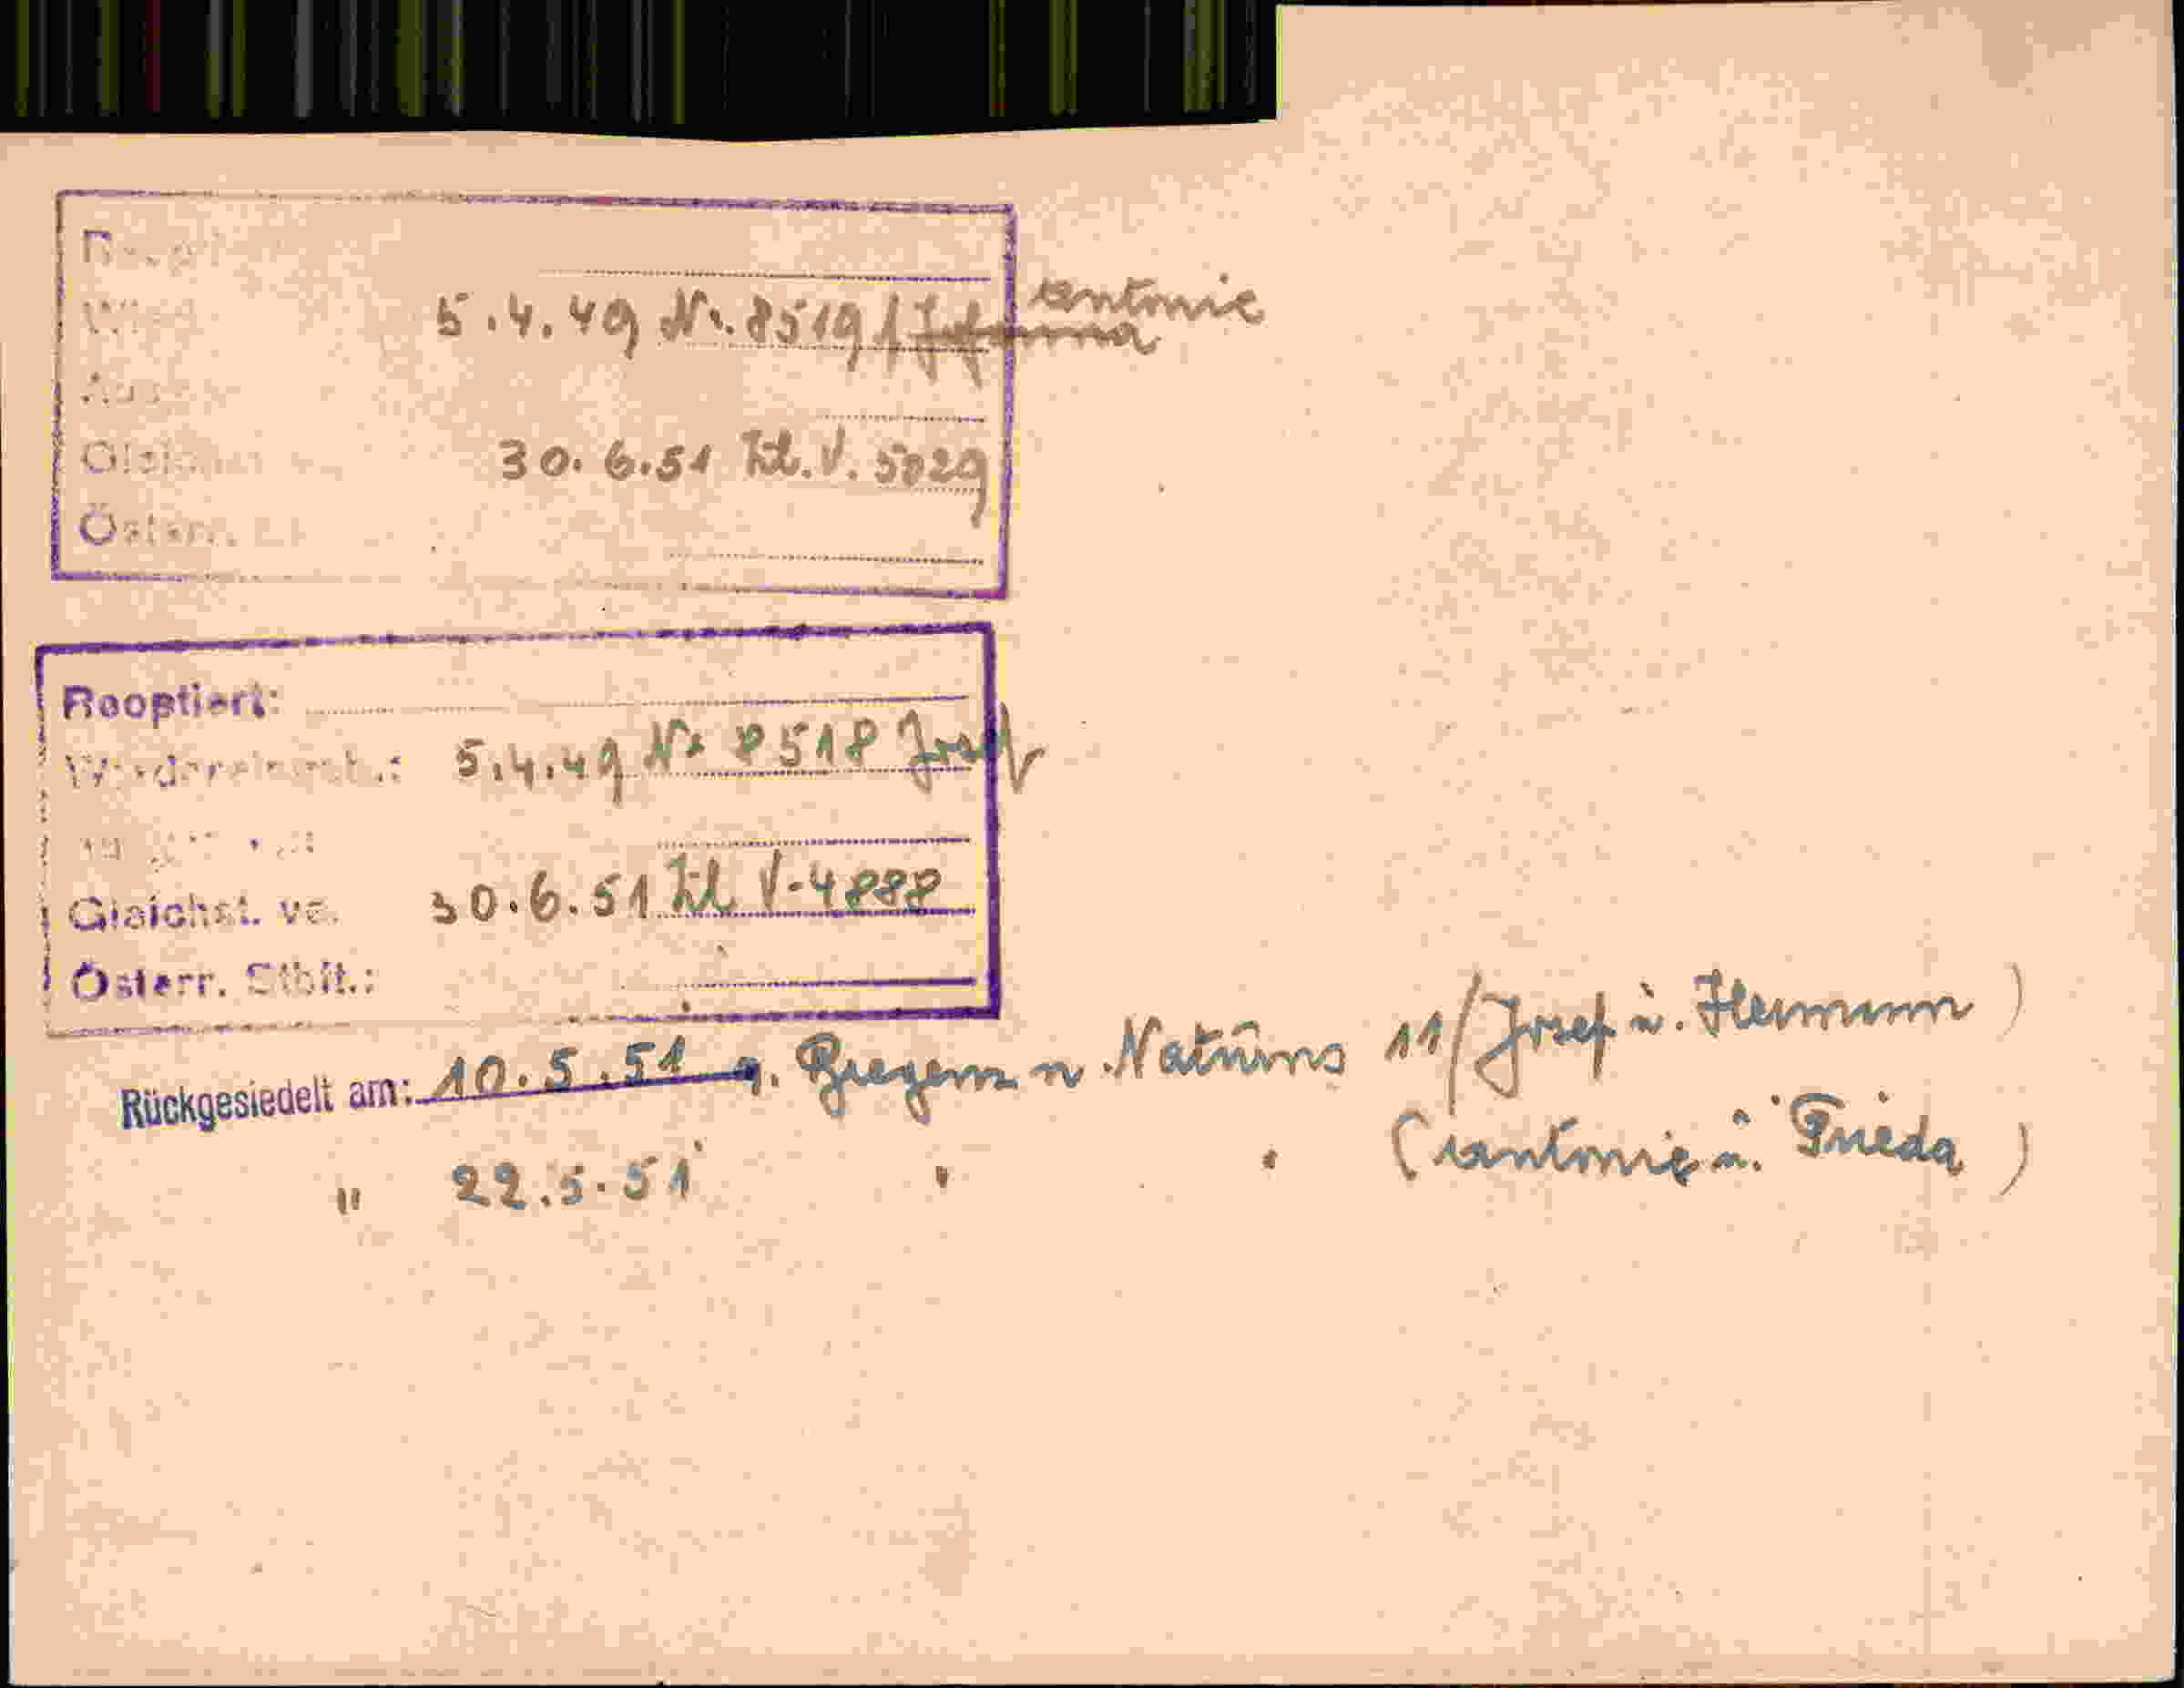 antonie
5.4.49 Nr. 8519 /
30.6.51 Zl. V. 5029
Österr.
Rooptiert:
5.4.49 Nr 8518 Josef
Gleichst. ve. 30.6.51 Zl V-4888
Österr. Stbft.:
Rückgesiedelt am: 10.5.51 v. Bregenz n. Naturns 11/ Josef u. Hermann )
" 22.5.51 " " ( antonie u. Frieda )